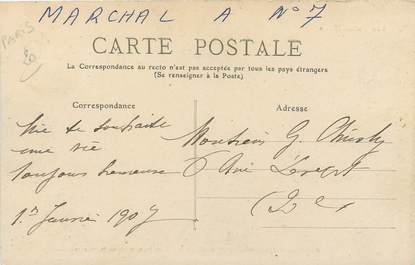 MARCHAL A N°7
PARIS
20
CARTE POSTALE
La Correspondance au recto n'est pas acceptée par tous les pays étrangers
(Se renseigner à la Poste)
Correspondance
Adresse
te souhaite
une vie
toujours heureuse
1er Janvier 1907
Monsieur G.
6